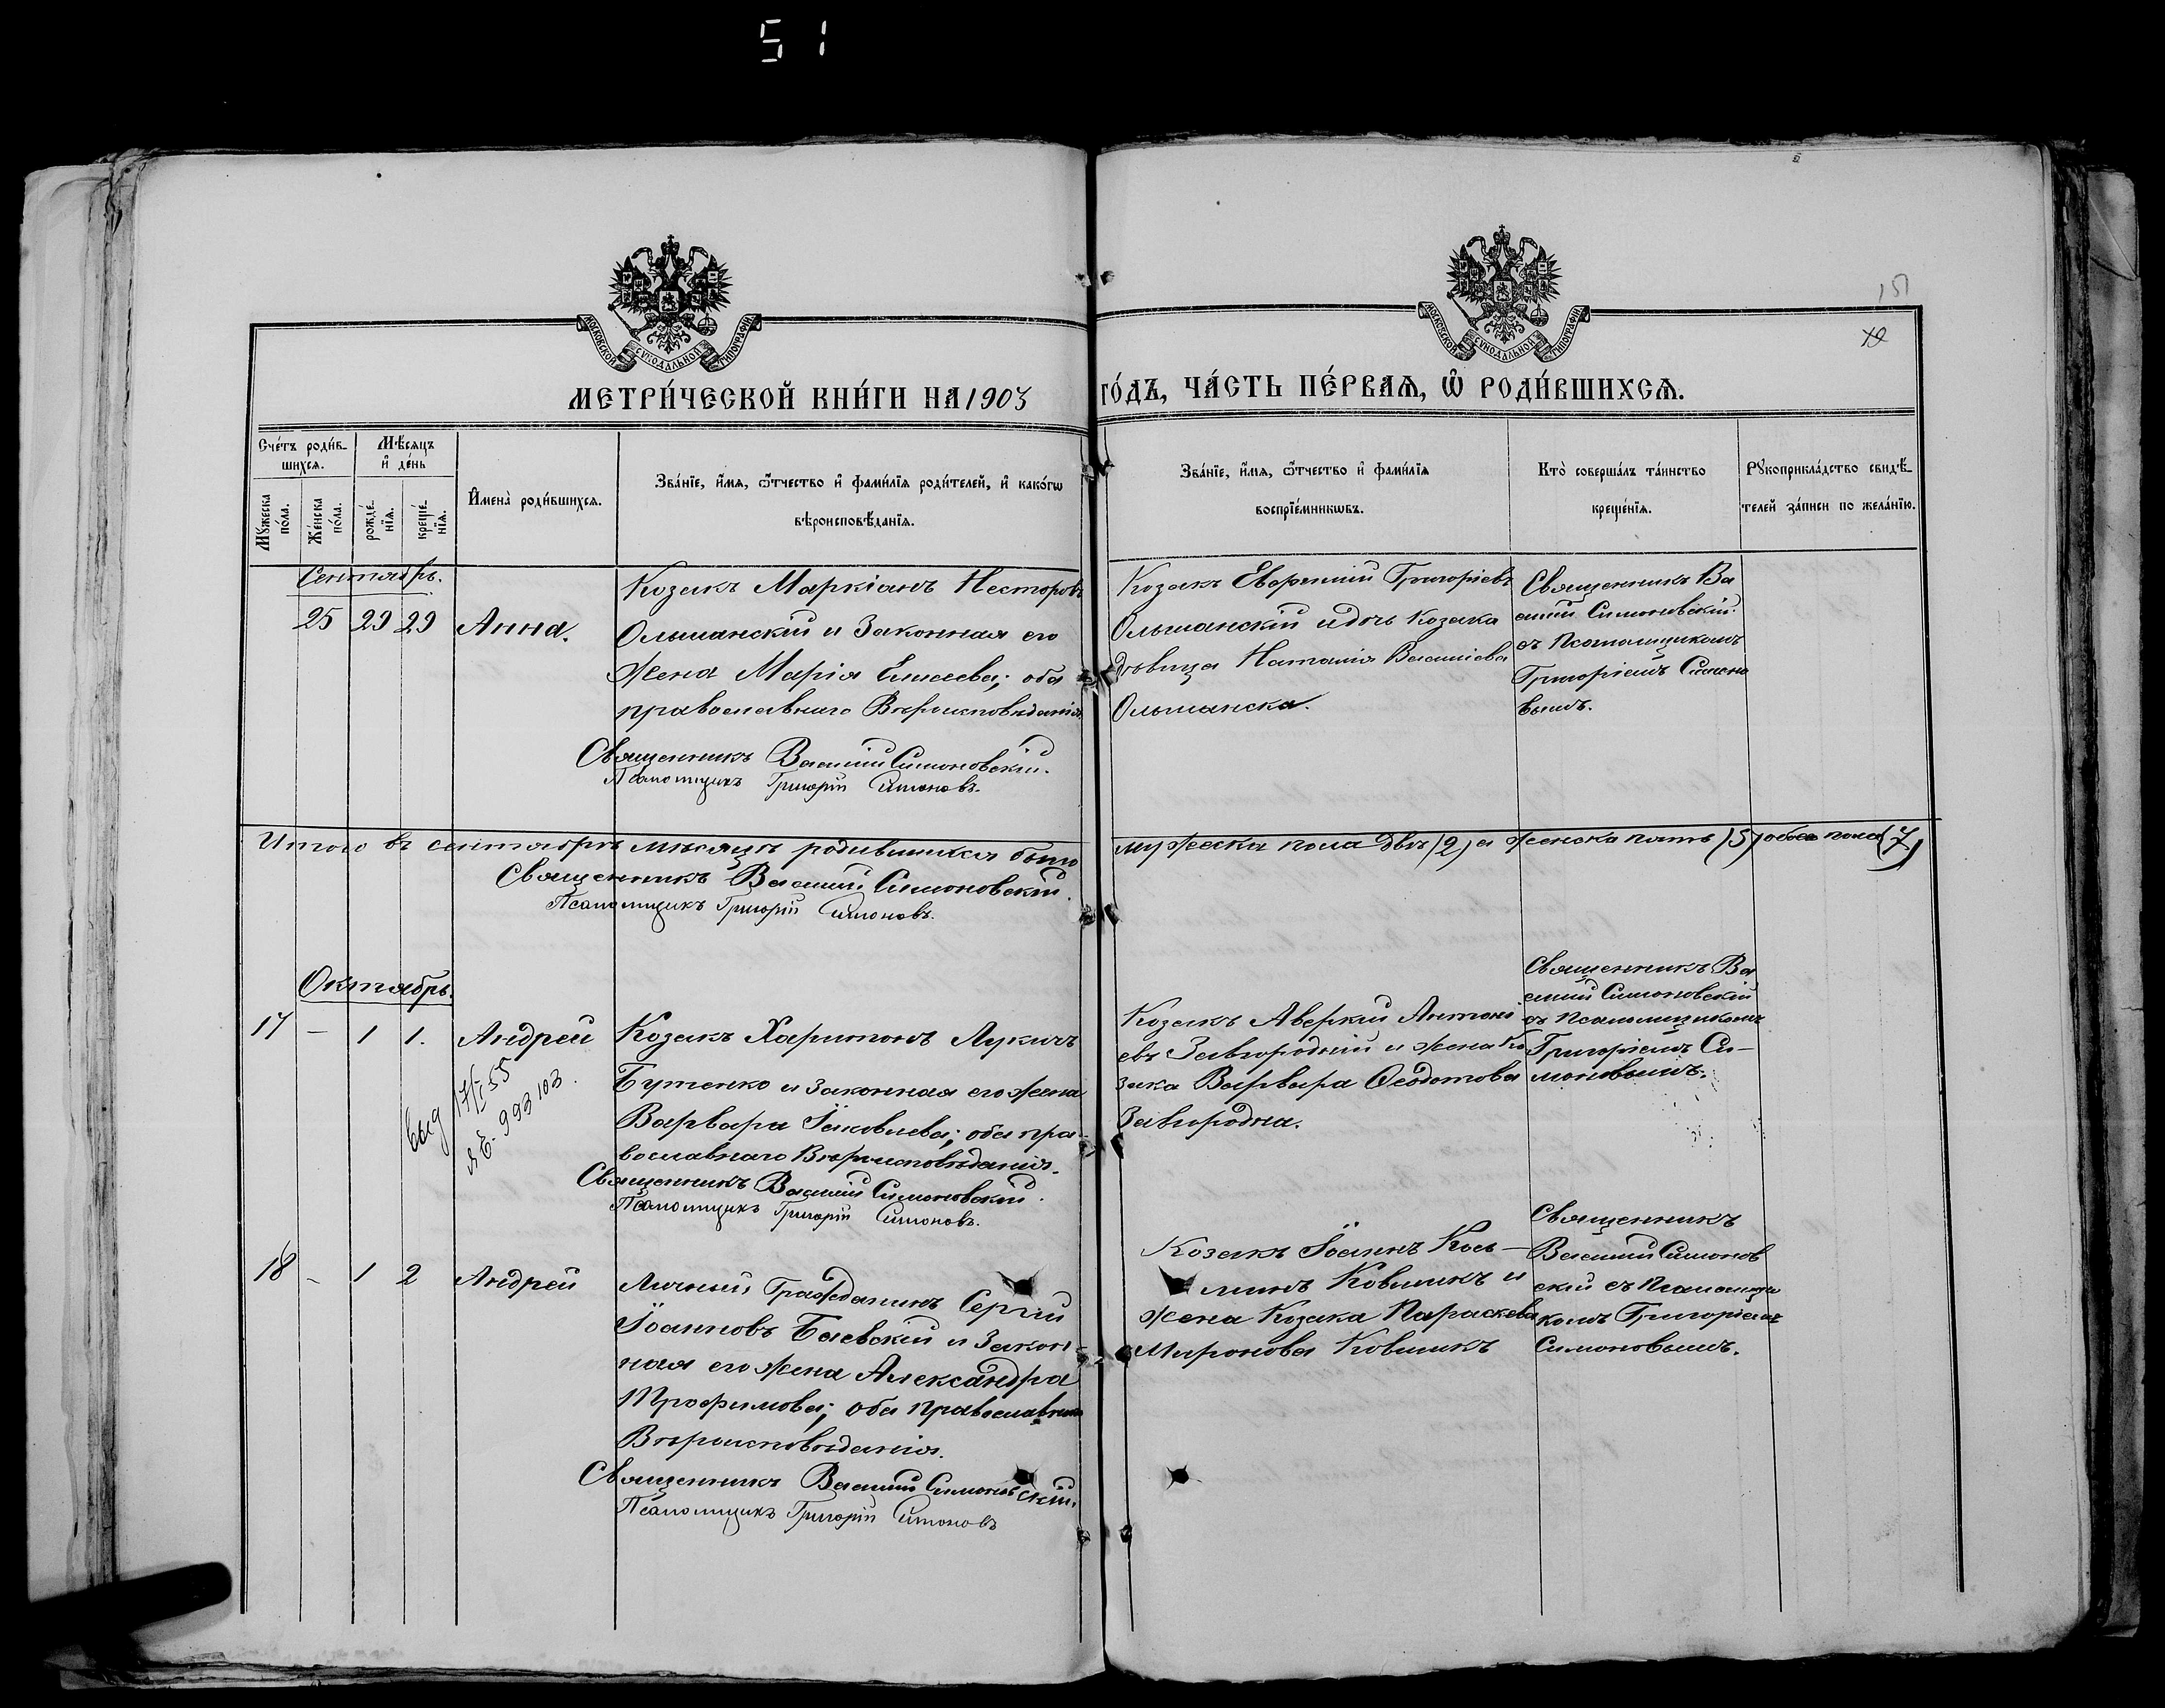 51
МОСКОВСКОЙ СѴНОДАЛЬНОЙ ТИПОГРАФІИ
МОСКОВСКОЙ СѴНОДАЛЬНОЙ ТИПОГРАФІИ
151
МЕТРИ́ЧЕСКОЙ КНИ́ГИ НА 1903
ГО́ДЪ, ЧА́СТЬ ПЕ́РВАЯ, Ѡ РОДИ́ВШИХСЯ.
Сче́тъ роди́в-
шихся.
Мѣ́сяцъ
и де́нь
Мꙋ́жеска
по́ла.
Же́нска
по́ла.
рожде́-
нїя.
креще́-
нїя.
Имена̀ роди́вшихся.
Зва́нїе, и́мя, ѻ҆́тчество и фами́лїя роди́телей, и како́гѡ
вѣроисповѣ́данїя.
Зва́нїе, и́мя, ѻ҆́тчество и фами́лїя
воспрїе́мникѡвъ.
Кто̀ соверша́лъ та́инство
креще́нїя.
Рꙋкоприкла́дство свидѣ́-
телей за́писи по жела́нїю.
Сентябрь.
25 29 29 Анна.
Козакъ Маркіанъ Несторовъ
Ольшанскій и законная его
жена Марія Елисеева; оба
православнаго Вѣроисповѣданія
Священникъ Василій Симоновскій.
Псаломщикъ Григорій Симоновъ.
Козакъ Григоріевъ
Ольшанскій и дочь Козака
дѣвица Наталія Василіева
Ольшанска.
Священникъ Ва
силій Симоновскій
съ Псаломщикомъ
Григоріемъ Симоно
вымъ.
Итого въ сентябрѣ мѣсяцѣ родившихся было
мужеска пола два (2) а женска пять (5) обоего пола (7)
Священникъ Василій Симоновскій.
Псаломщикъ Григорій Симоновъ.
Октябрь.
17 – 1 1. Андрей
выд 17/I 55
993103.
Козакъ Харитонъ Лукичъ
Бутенко и законная его жена
Варвара Іаковлева; оба пра-
вославнаго Вѣроисповѣданія.
Священникъ Василій Симоновскій.
Псаломщикъ Григорій Симоновъ.
Козакъ Аверкій Антоні
евъ Завгородній и жена Ко
зака Варвара Ѳеодотова
Завгородна.
Священникъ Ва
силій Симоновскій
съ Псаломщикомъ
Григоріемъ Си-
моновымъ.
18 – 1 2 Андрей
Личный Гражданинъ Сергій
Іоанновъ Баевскій и закон
ная его жена Александра
Трофимова; оба православнаго
Вѣроисповѣданія.
Священникъ Василій Симоновскій.
Псаломщикъ Григорій Симоновъ
Козакъ Іоаннъ Кось-
минъ Ковшикъ и
жена Козака Параскева
Миронова Ковшикъ
Священникъ
Василій Симонов
скій съ Псаломщи
комъ Григоріемъ
Симоновымъ.